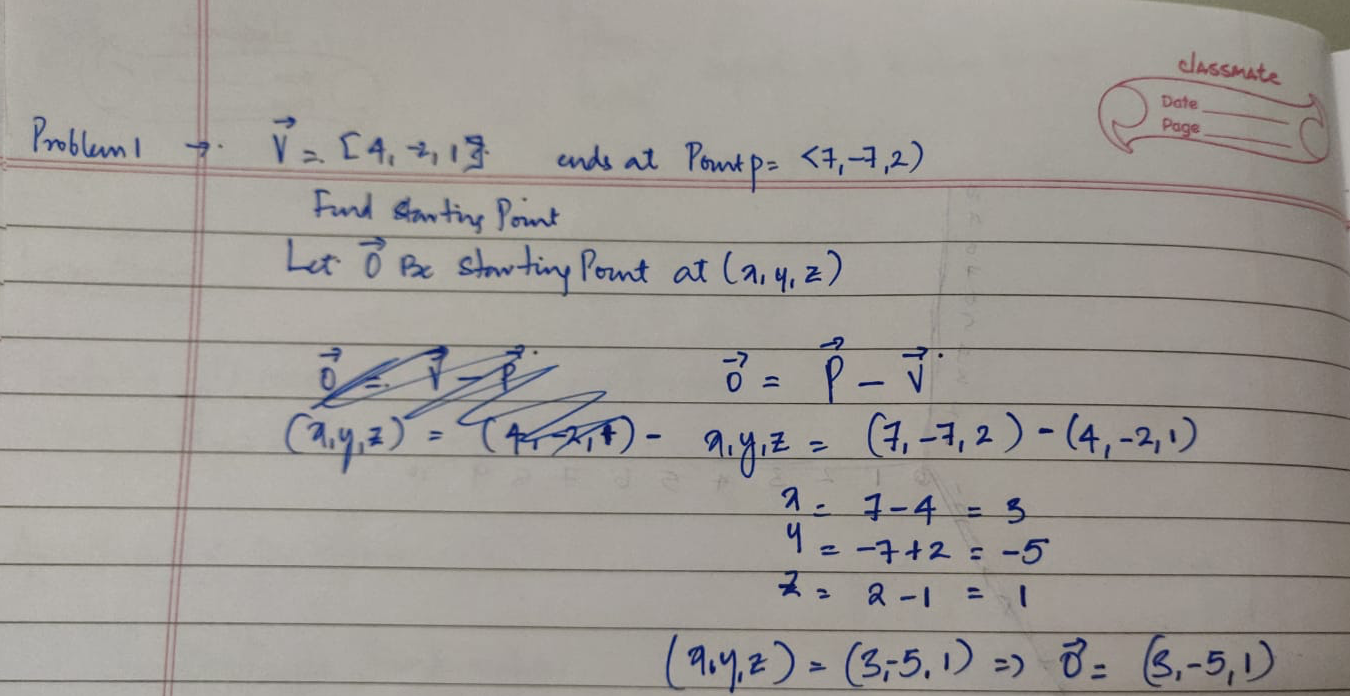 classmate
Date
Page
Problem 1 → V⃗ = [4, -2, 1] ends at Point p = <7, -7, 2)
Find starting Point
Let O⃗ Be starting Point at (x, y, z)
O⃗ = V⃗ - P⃗ O⃗ = P⃗ - V⃗
(x, y, z) = (4, -2, 1) - x, y, z = (7, -7, 2) - (4, -2, 1)
x = 7 - 4 = 3
y = -7 + 2 = -5
z = 2 - 1 = 1
(x, y, z) = (3, -5, 1) => O⃗ = (3, -5, 1)